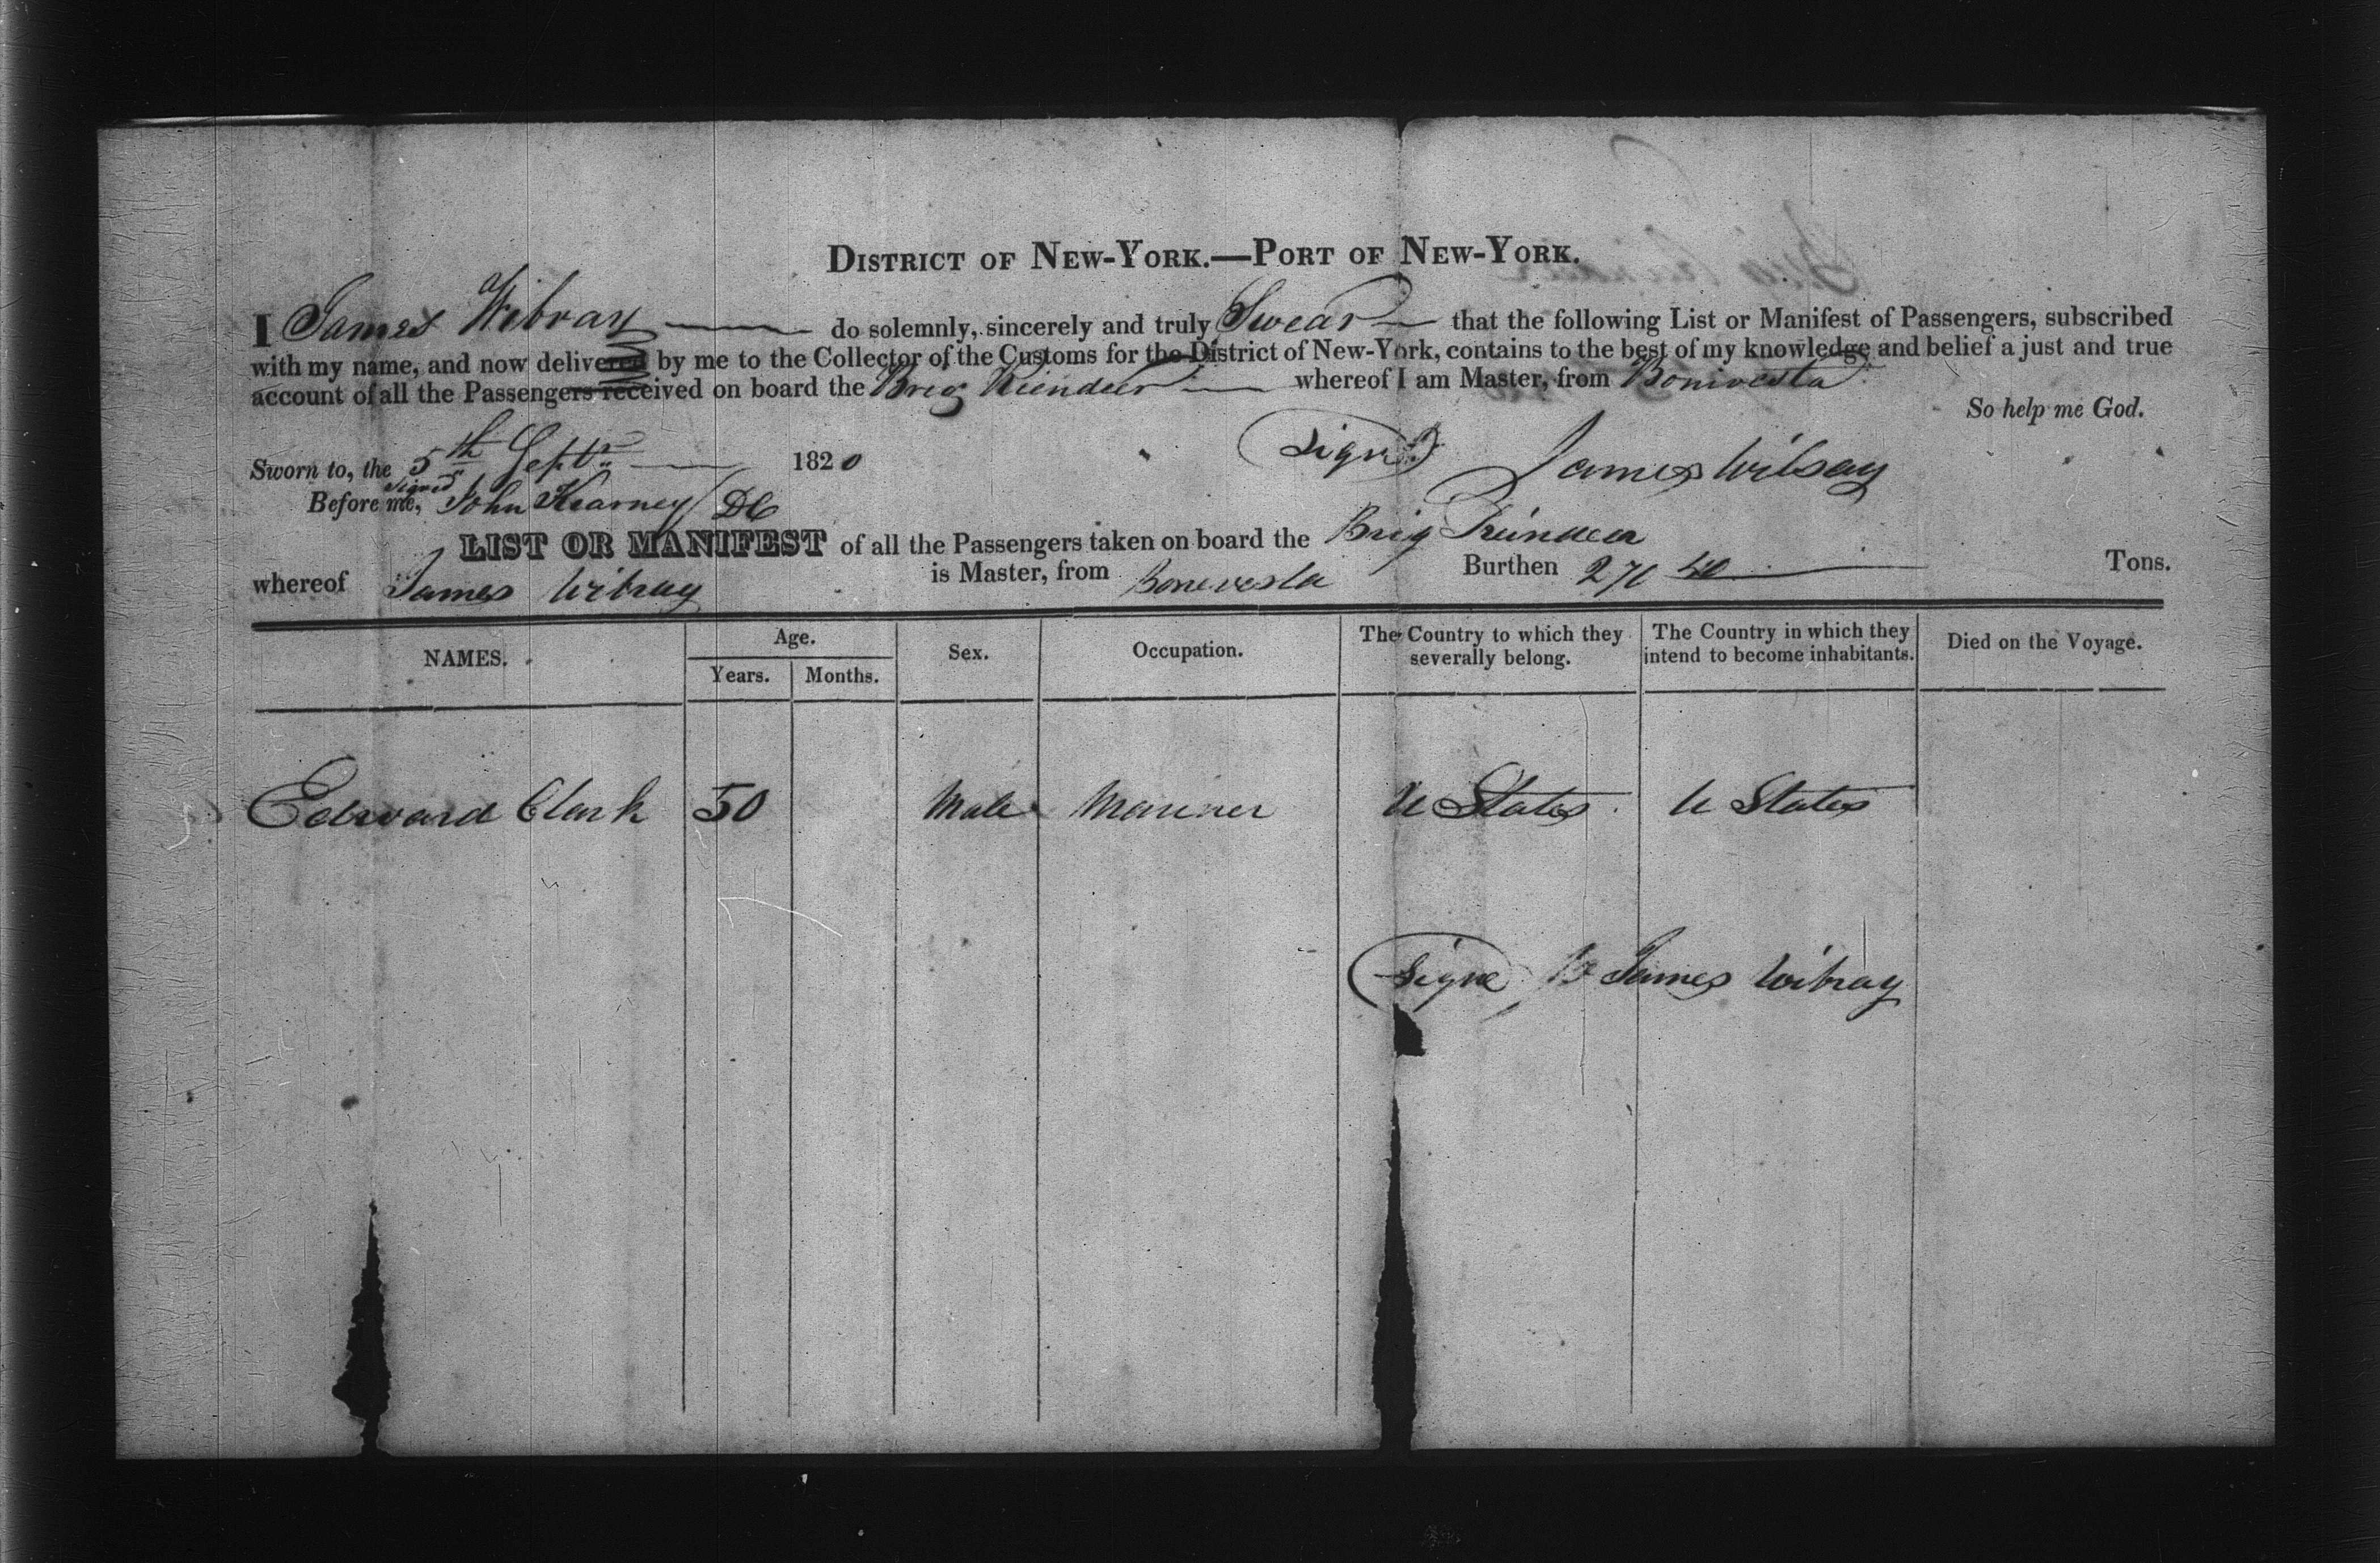 DISTRICT OF NEW-YORK.—PORT OF NEW-YORK.
I James Wibray do solemnly, sincerely and truly Swear that the following List or Manifest of Passengers, subscribed
with my name, and now delivered by me to the Collector of the Customs for the District of New-York, contains to the best of my knowledge and belief a just and true
account of all the Passengers received on board the Brig Reindeer whereof I am Master, from Bonivesta
So help me God.
Sworn to, the 5th Septr 1820 (Signd) James Wibray
Before me, Signed John Kearney DC
LIST OR MANIFEST of all the Passengers taken on board the Brig Reindeer
whereof James Wibray is Master, from Bonevesta Burthen 270 40 Tons.
NAMES. Age. Years. Months. Sex. Occupation. The Country to which they severally belong. The Country in which they intend to become inhabitants. Died on the Voyage.
Edward Clark 50 Male Mariner U States U States
James Wibray